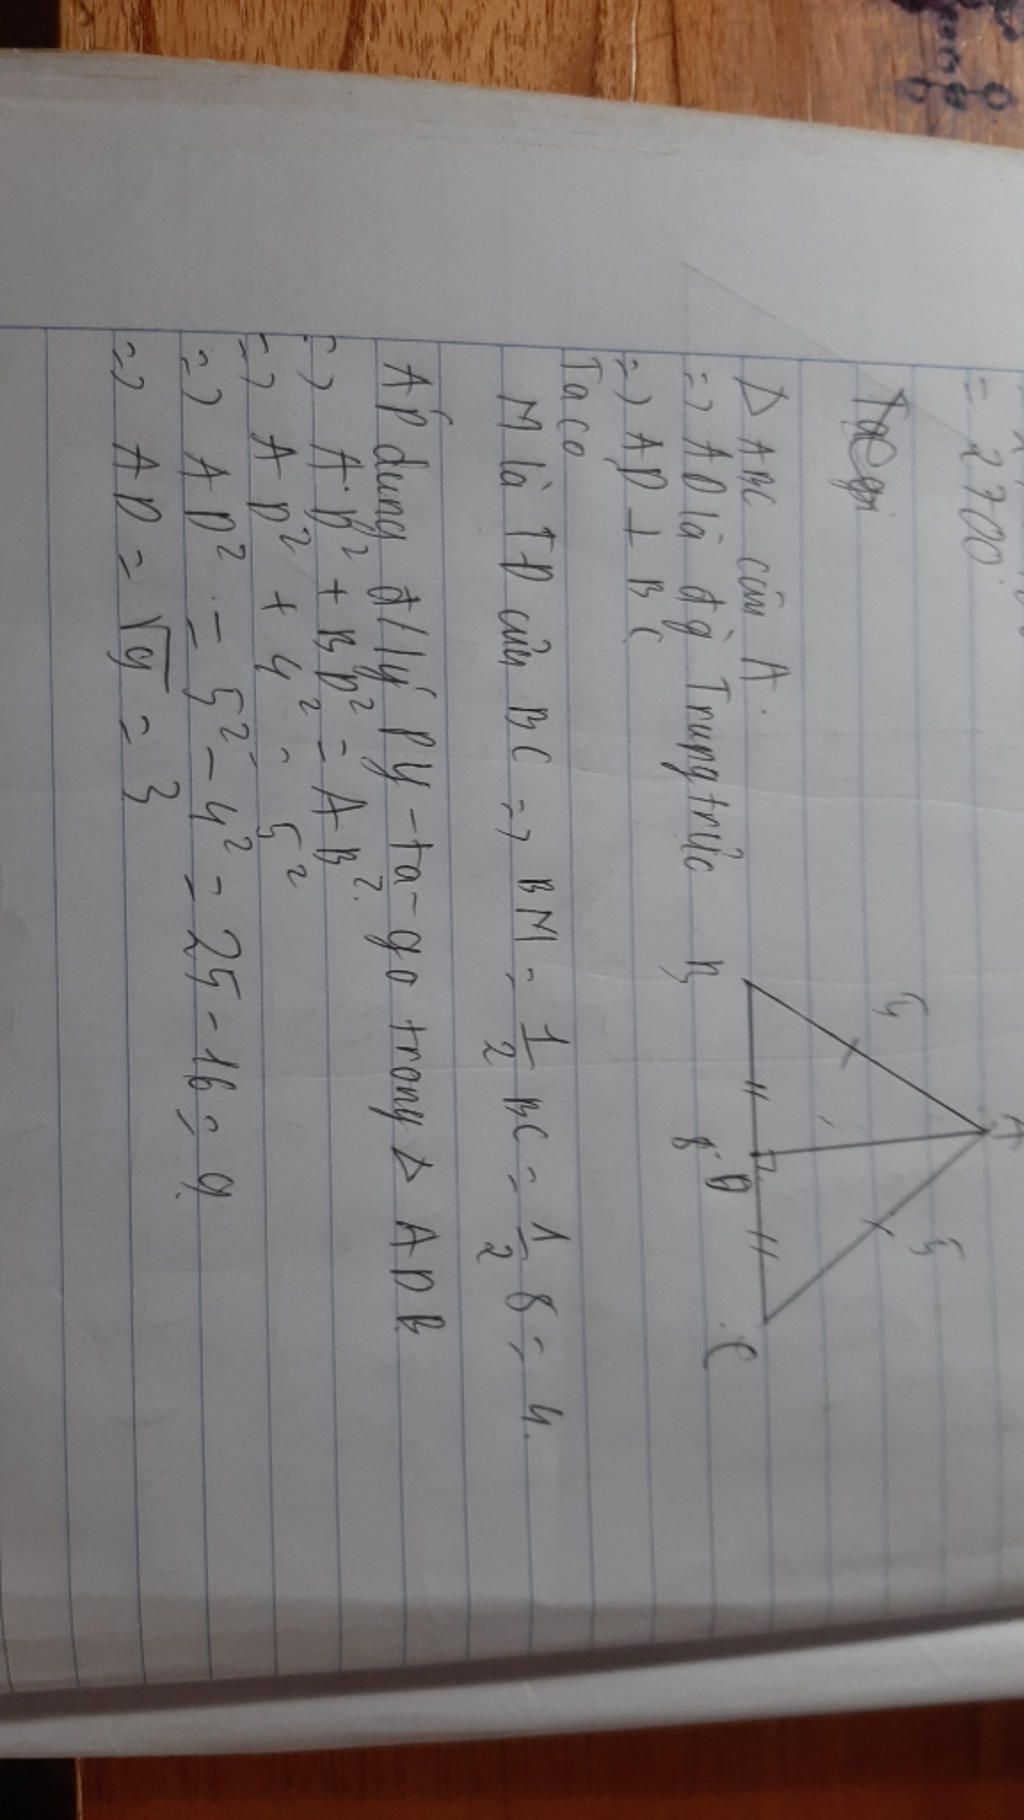 = 2700
Δ ABC cân A.
=> AD là đg Trung trực
=> AD ⊥ BC
Ta co
M là TD của BC => BM = 1/2 BC = 1/2 8 = 4.
ÁP dung đ/lý PY-ta-go trong Δ ADB
=> AD² + BD² = AB².
=> AD² + 4² = 5²
=> AD² = 5² - 4² = 25 - 16 = 9
=> AD = √9 = 3
A
5
5
B
D
8
C